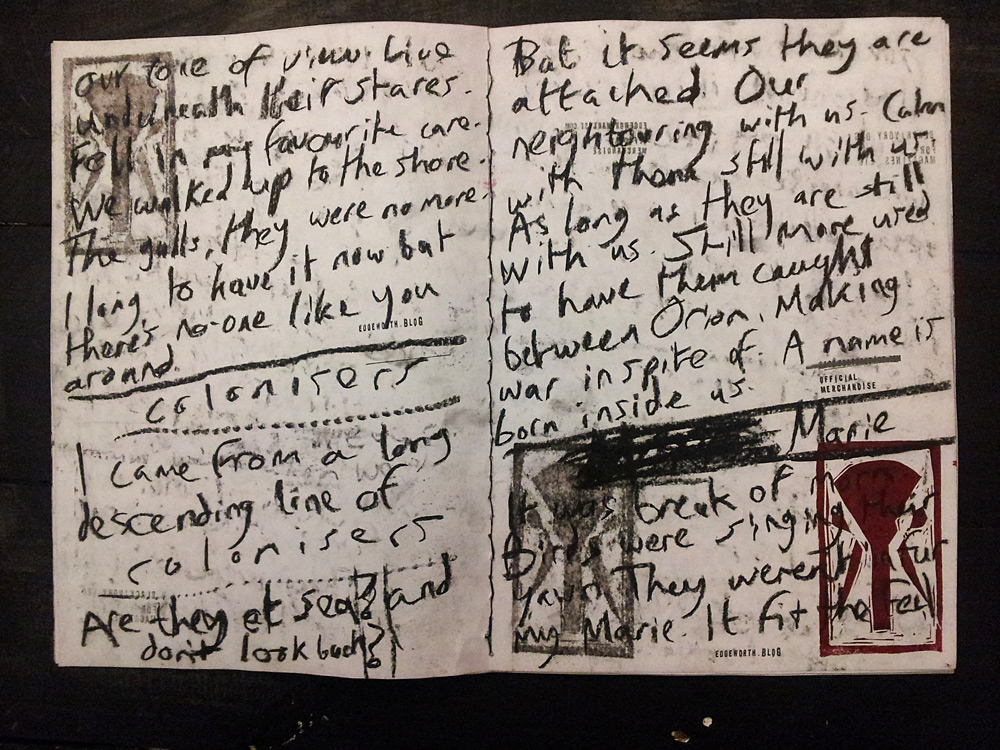 our tone of view. Live
underneath their stares.
Fell in my favourite care.
We walked up to the shore.
The gulls, they were no more.
I long to have it now but
there's no-one like you
EDGEWORTH.BLOG
around.
colonisers
I came from a long
descending line of
colonisers
Are they at sea? and
don't look back?
But it seems they are
attached. Our
neighbouring with us. Calm
with them still with us
As long as they are still
with us. Still more used
to have them caught
between Orion. Making
war in spite of. A name is
OFFICIAL
MERCHANDISE
born inside us.
Marie
It was break of morn
Birds were singing their
yawn They weren't fur
my Marie. It fit the
EDGEWORTH.BLOG